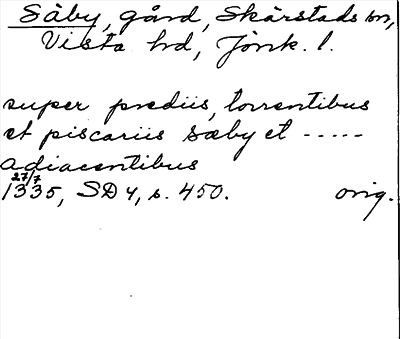 Säby, gård, Skärstads sn,
Vista hd, Jönk. l.
super prediis, torrentibus
et piscariis sæby et -----
adiacentibus
27/7
1335, SD 4, s. 450. orig.